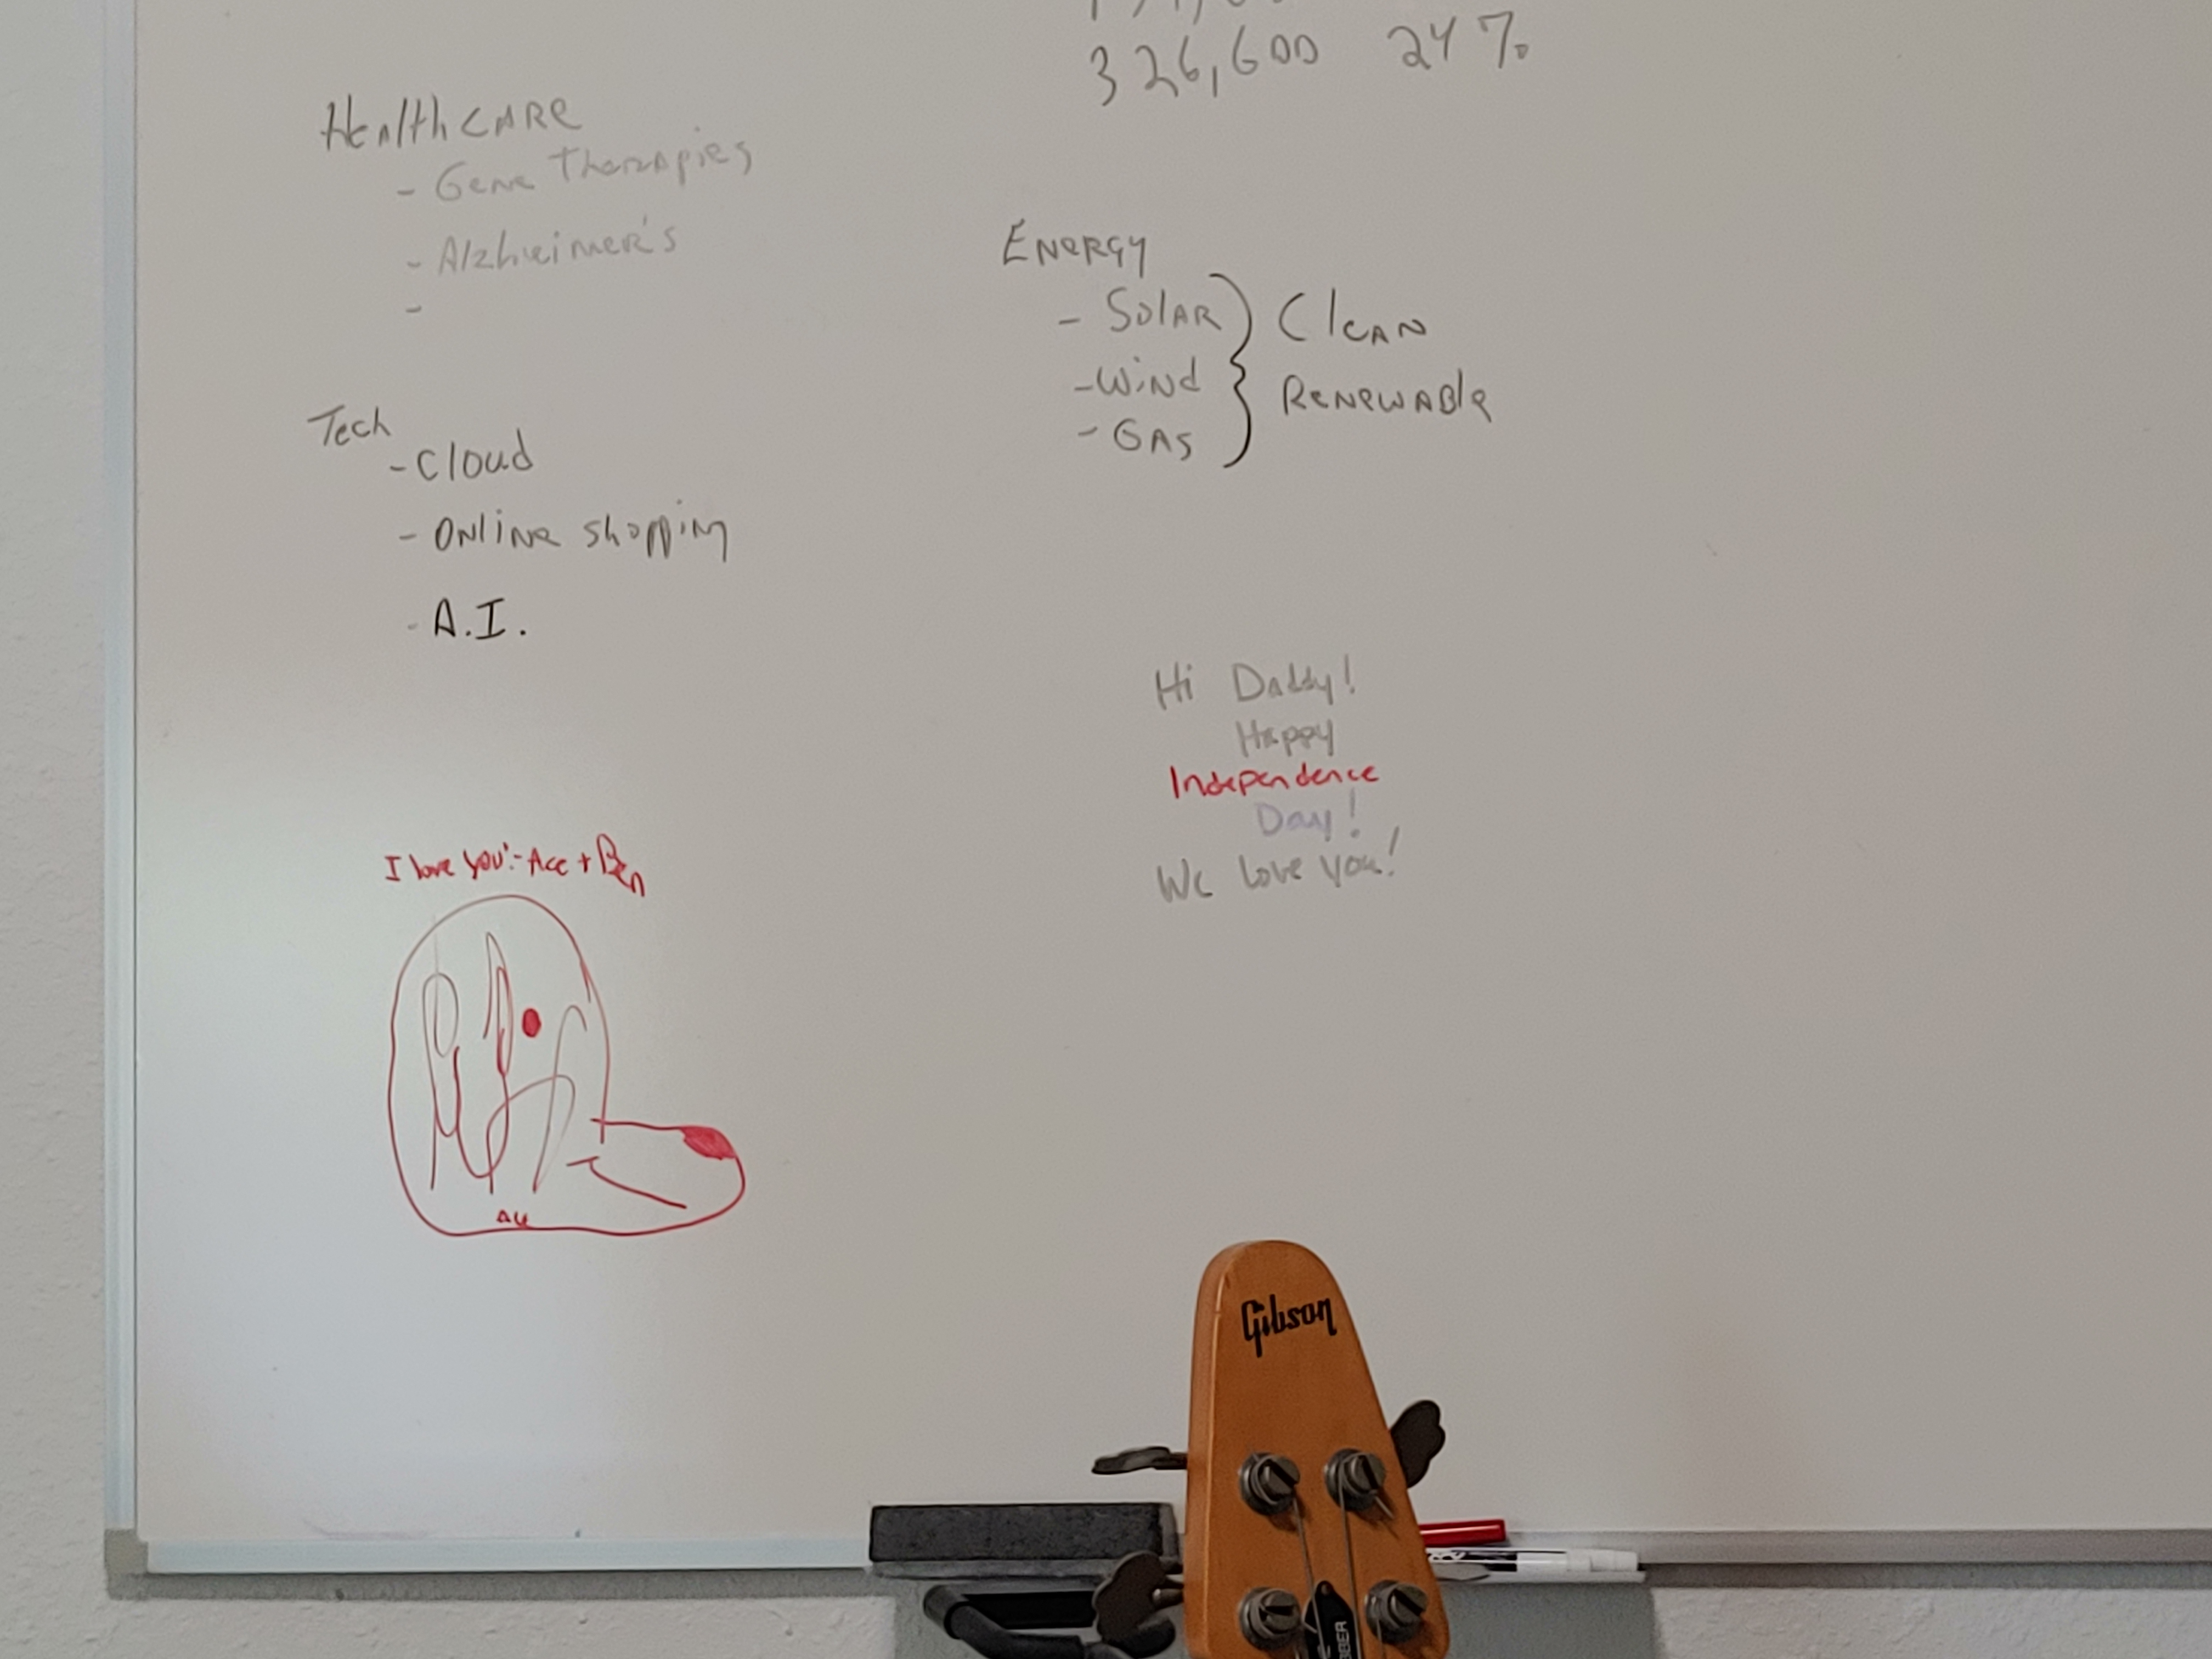 326,600 24%
Healthcare
- Gene Therapies
- Alzheimer's
-
Tech
- Cloud
- Online shopping
- A.I.
Energy
- Solar
- Wind
- Gas
Clean
Renewable
Hi Daddy!
Happy
Independence
Day!
We love you!
I love you! - Ace + Ben
Gibson